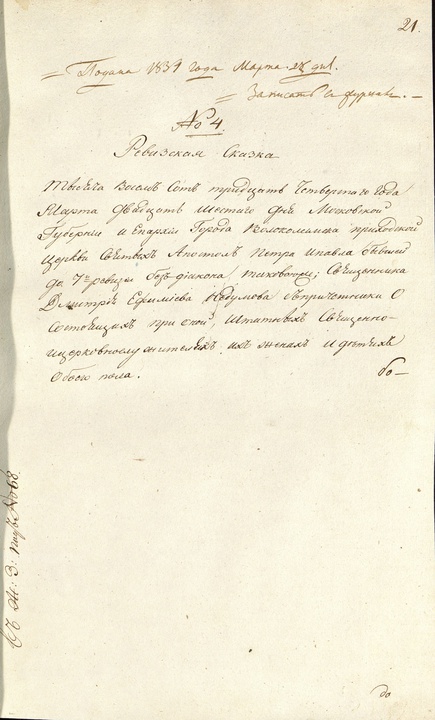 21.
Подана 1834 года Марта 26 дня.
Записать в журнал. —
№ 4.
Ревизская Сказка
Тысяча Восемь Сотъ тридцать Четвертаго Года
Марта двадцать шестаго дня Московской
Губернии и Епархiи Города Волокламска приходской
церкви Святыхъ Апостолъ Петра и Павла бывшей
до 7й ревизiи безъ диакона таковаго; Священника
Димитрiя Ефимiева съ причетники О
Состоящихъ при оной, штатныхъ Священно-
ицерковнослужителяхъ ихъ женахъ и детяхъ
Обоего пола.
до